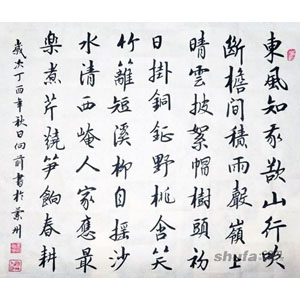 東風知我欲山行吹
斷檐間積雨聲嶺上
晴雲披絮帽樹頭初
日掛銅鉦野桃含笑
竹籬短溪柳自搖沙
水清西崦人家應最
樂煮芹燒筍餉春耕
歲次丁酉年秋日向前書於州
shufa